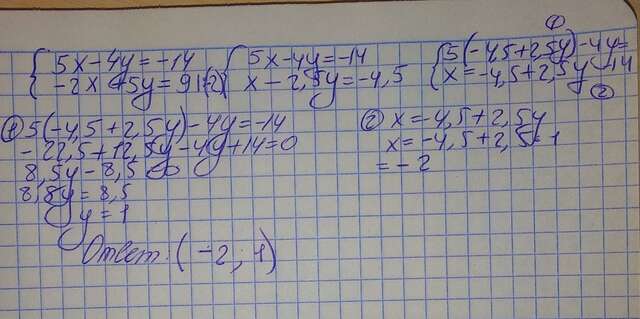 ①
{5x-4y=-14 {5x-4y=-14 {5(-4,5+2,5y)-4y=
{-2x+5y=9|:(-2) {x-2,5y=-4,5 {x=-4,5+2,5y -14
②
① 5(-4,5+2,5y)-4y=-14 ② x=-4,5+2,5y
-22,5+12,5y-4y+14=0 x=-4,5+2,5·1
8,5y-8,5=0 =-2
8,5y=8,5
y=1
Ответ: (-2; 1)